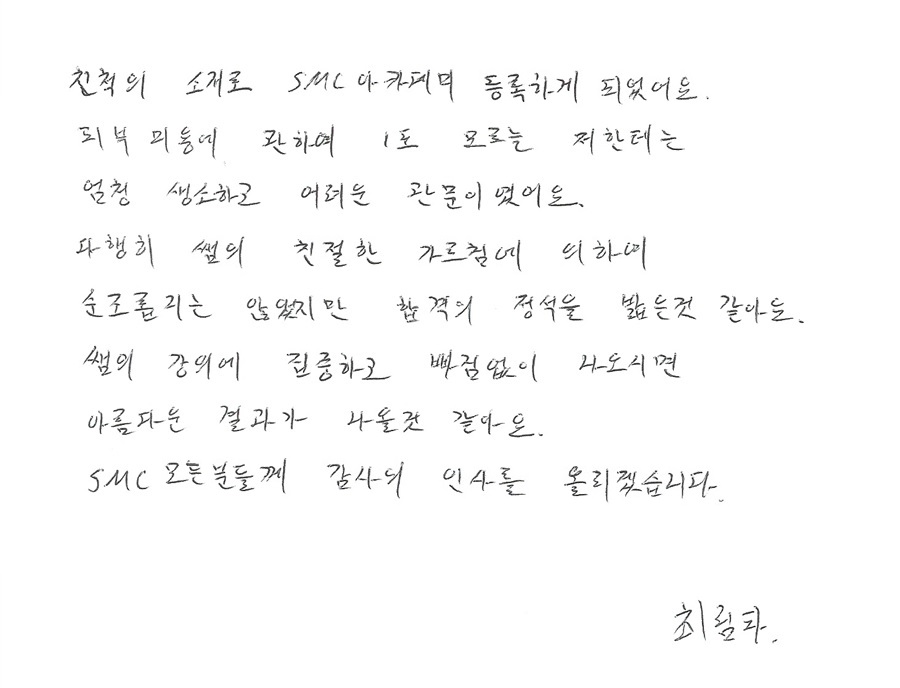 친척의 소개로 SMC아카데미 등록하게 되었어요.
피부 미용에 관하여 1도 모르는 저한테는
엄청 생소하고 어려운 관문이였어요.
다행히 쌤의 친절한 가르침에 의하여
순조롭지는 않았지만 합격의 정석을 밟은것 같아요.
쌤의 강의에 집중하고 빠짐없이 나오시면
아름다운 결과가 나올것 같아요.
SMC 모든분들께 감사의 인사를 올리겠습니다.